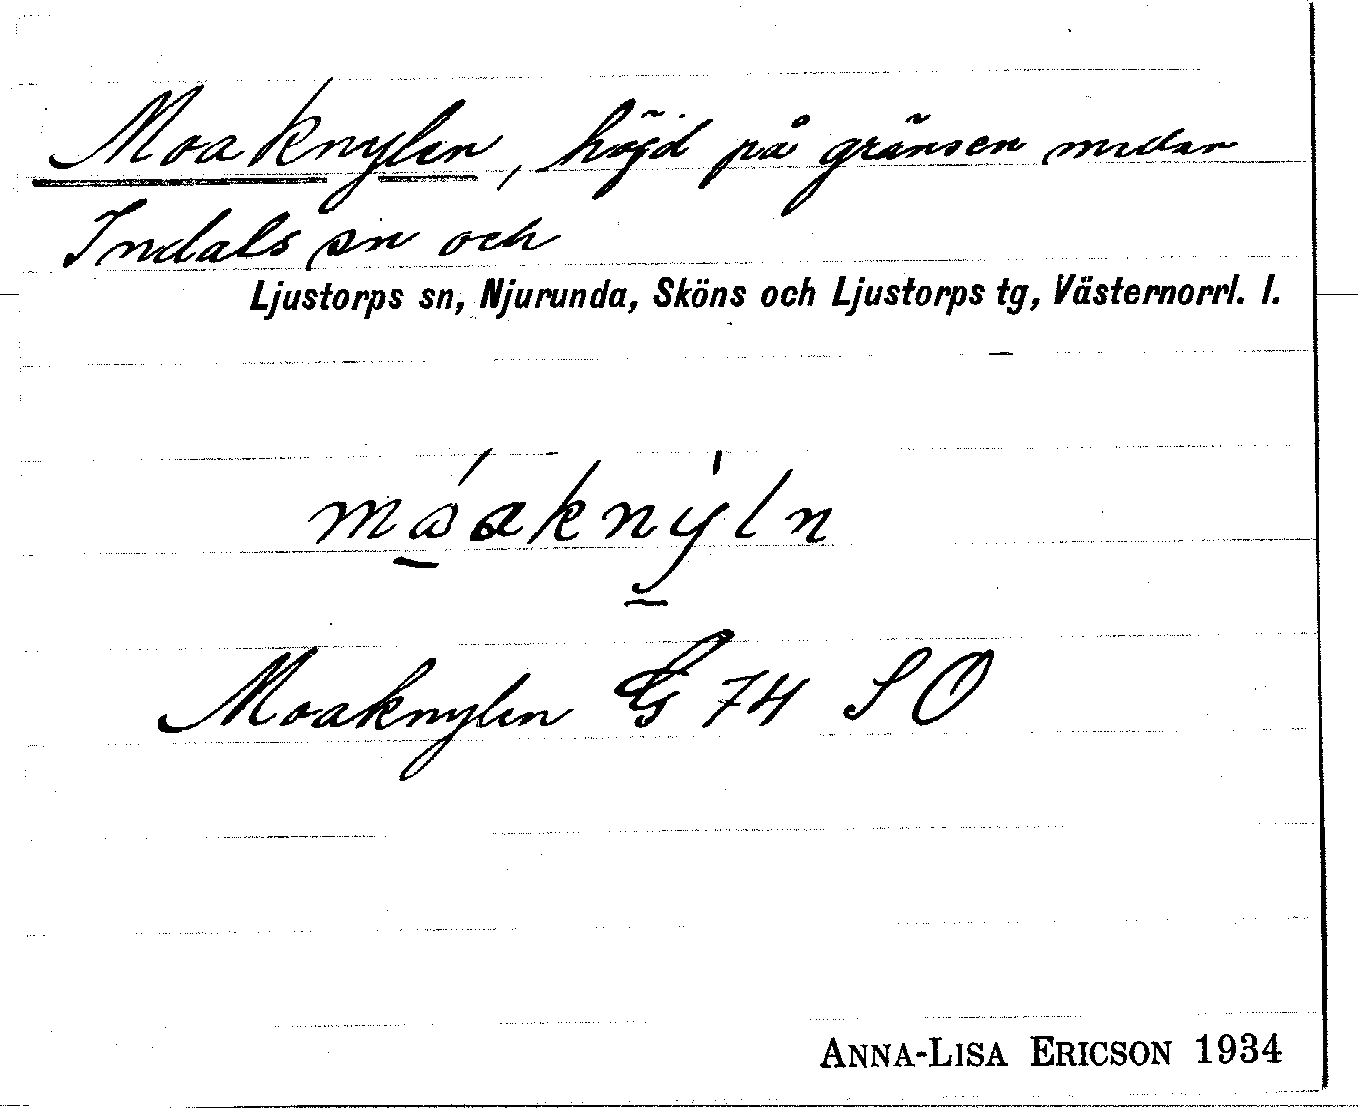 Moaknylen, höjd på gränsen mellan
Indals sn och
Ljustorps sn, Njurunda, Sköns och Ljustorps tg, Västernorrl. l.
Moaknylen G 74 SO
ANNA-LISA ERICSON 1934